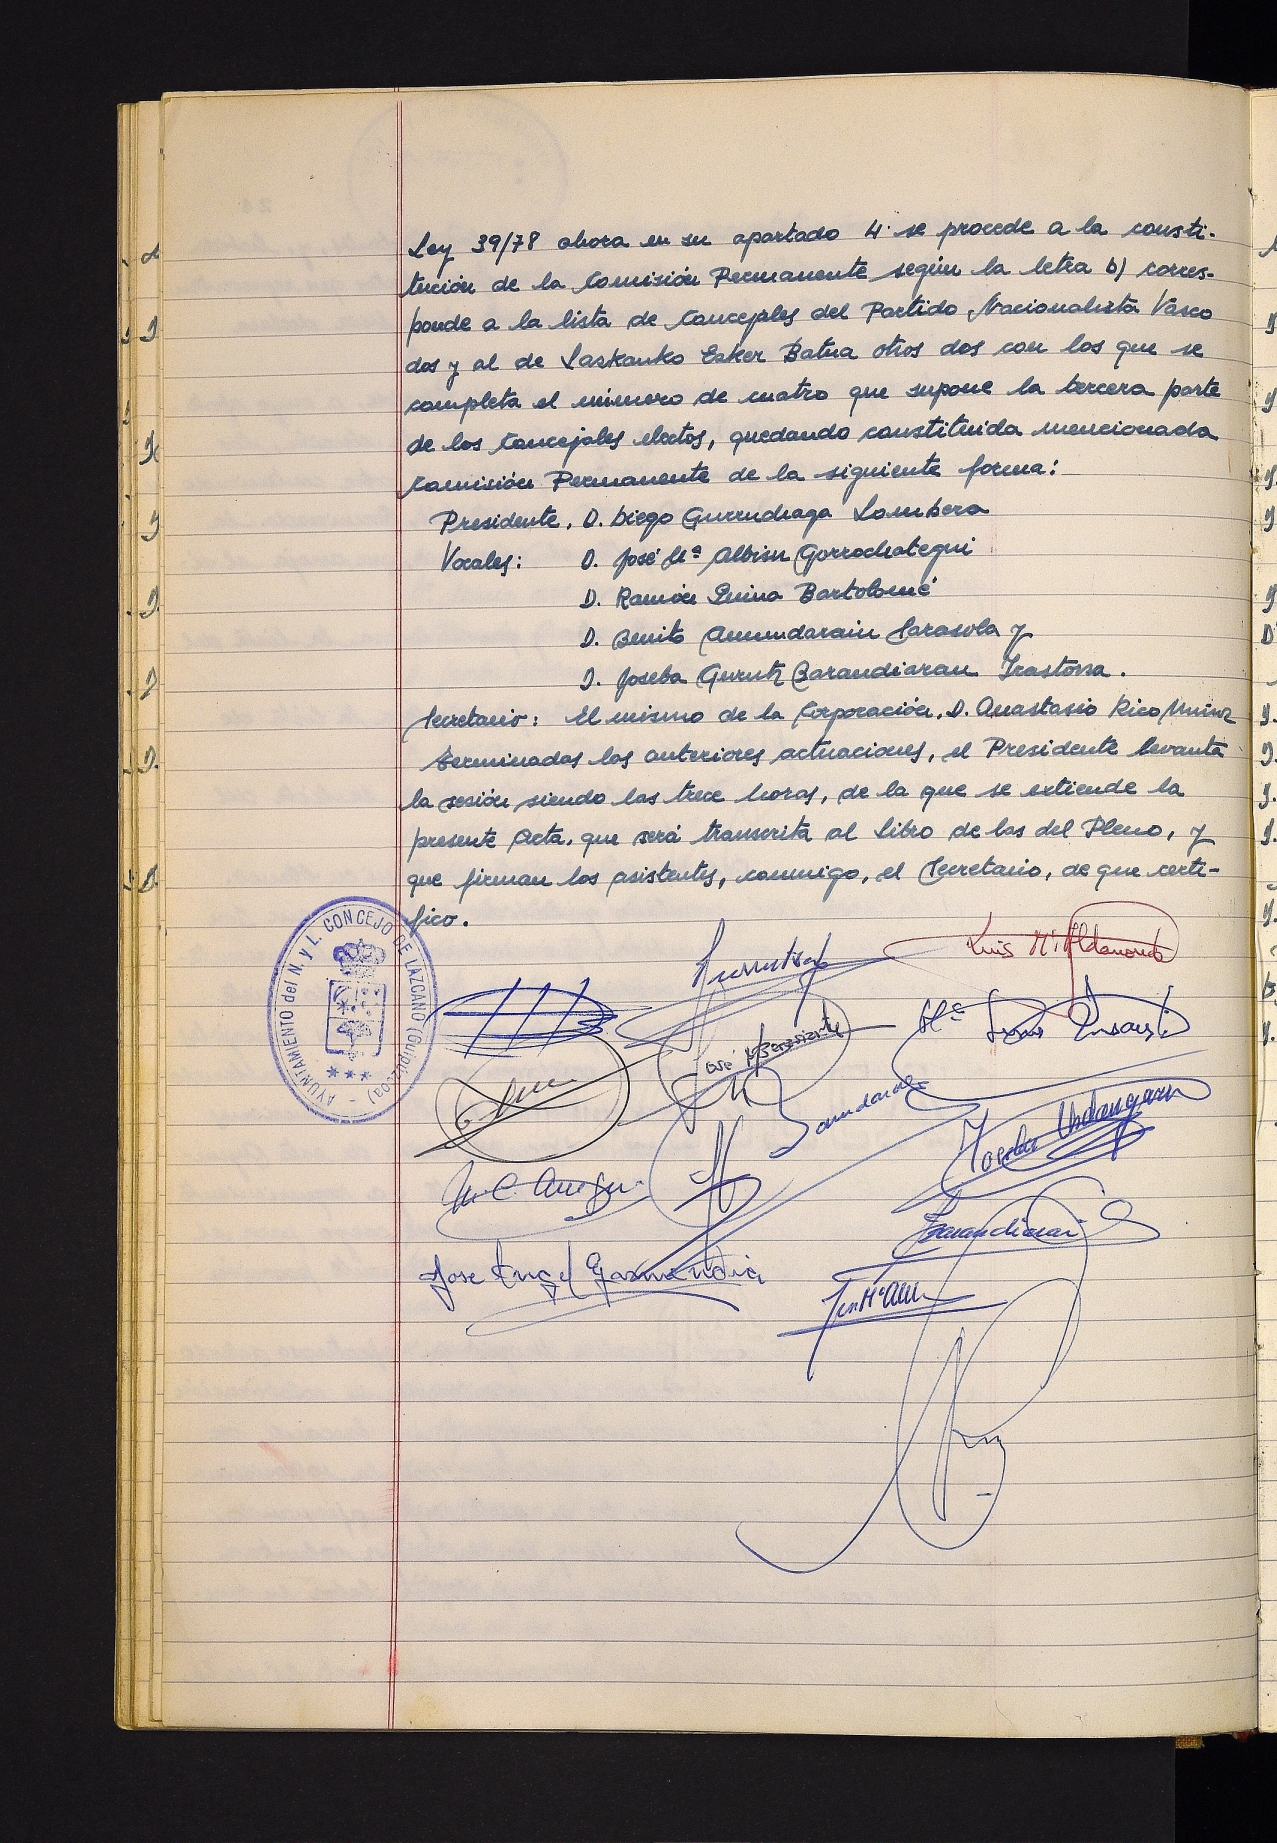 Ley 39/78 ahora en su apartado 4º se procede a la consti-
tución de la Comisión Permanente según la letra b) corres-
ponde a la lista de Concejales del Partido Nacionalista Vasco
dos y al de Laskauko Esker Batua otros dos con los que se
completa el número de cuatro que supone la tercera parte
de los Concejales electos, quedando constituida mencionada
Comisión Permanente de la siguiente forma:
Presidente, D. Diego Gurrudiaga Lombera
Vocales: D. José Mª Albisu Gorrochategui
D. Ramón Bartolomé
D. Benito Amundarain Sarasola y
D. Joseba Gurutz Barandiaran Irastorza.
Secretario: El mismo de la Corporación, D. Anastasio Rico
Terminadas las anteriores actuaciones, el Presidente levanta
la sesión siendo las trece horas, de la que se extiende la
presente Acta, que será transcrita al Libro de las del Pleno, y
que firman los asistentes, conmigo, el Secretario, de que certi-
fico.
AYUNTAMIENTO del N. y L. CONCEJO DE LAZCANO (Guipúzcoa)
Luis Mª Aldanondo
José
Jose Angel Garmendia